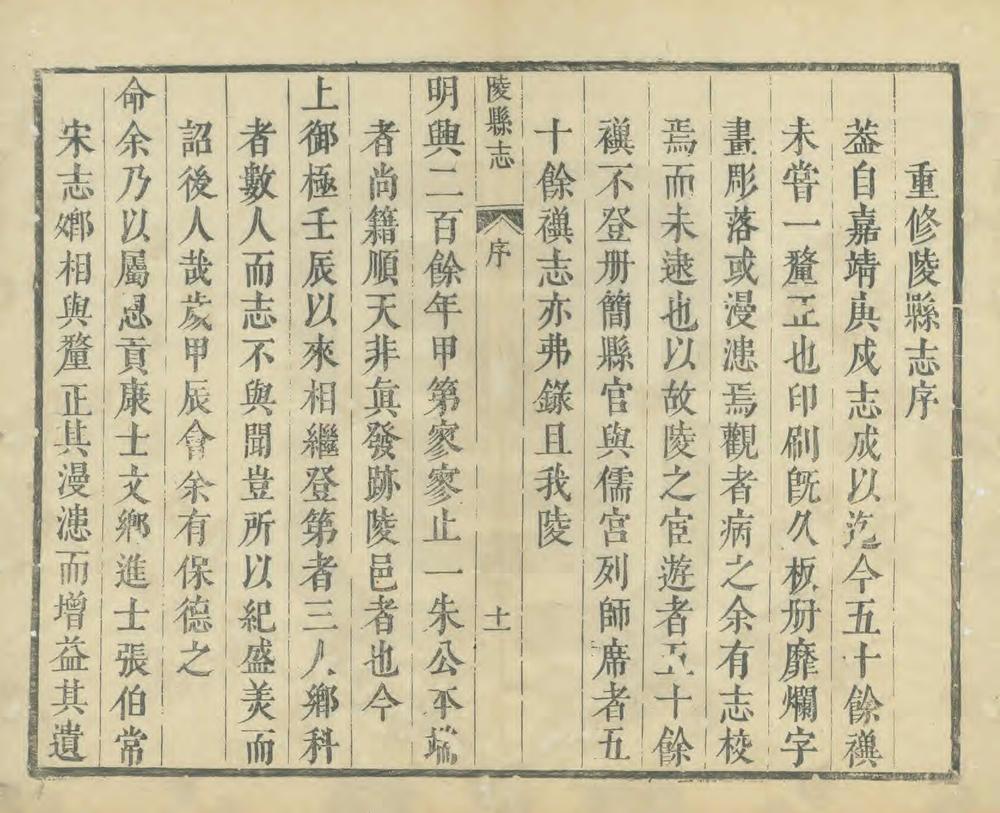 重修陵縣志序
葢自嘉靖庚戍志成以迄今五十餘禩
未嘗一釐正也印刷旣久板册靡爛字
畫彫落或漫漶焉觀者病之余有志校
焉而未逮也以故陵之宦遊者五十餘
禩不登册簡縣官與儒宫列師席者五
十餘禩志亦弗錄且我陵
陵縣志 序 十一
明興二百餘年甲第寥寥止一朱公平端
者尚籍順天非眞發跡陵邑者也今
上御極壬辰以來相繼登第者三人鄉科
者數人而志不與聞豈所以紀盛美而
詔後人哉歲甲辰會余有保德之
命余乃以屬恩貢康士文鄉進士張伯常
宋志鄉相與釐正其漫漶而增益其遺